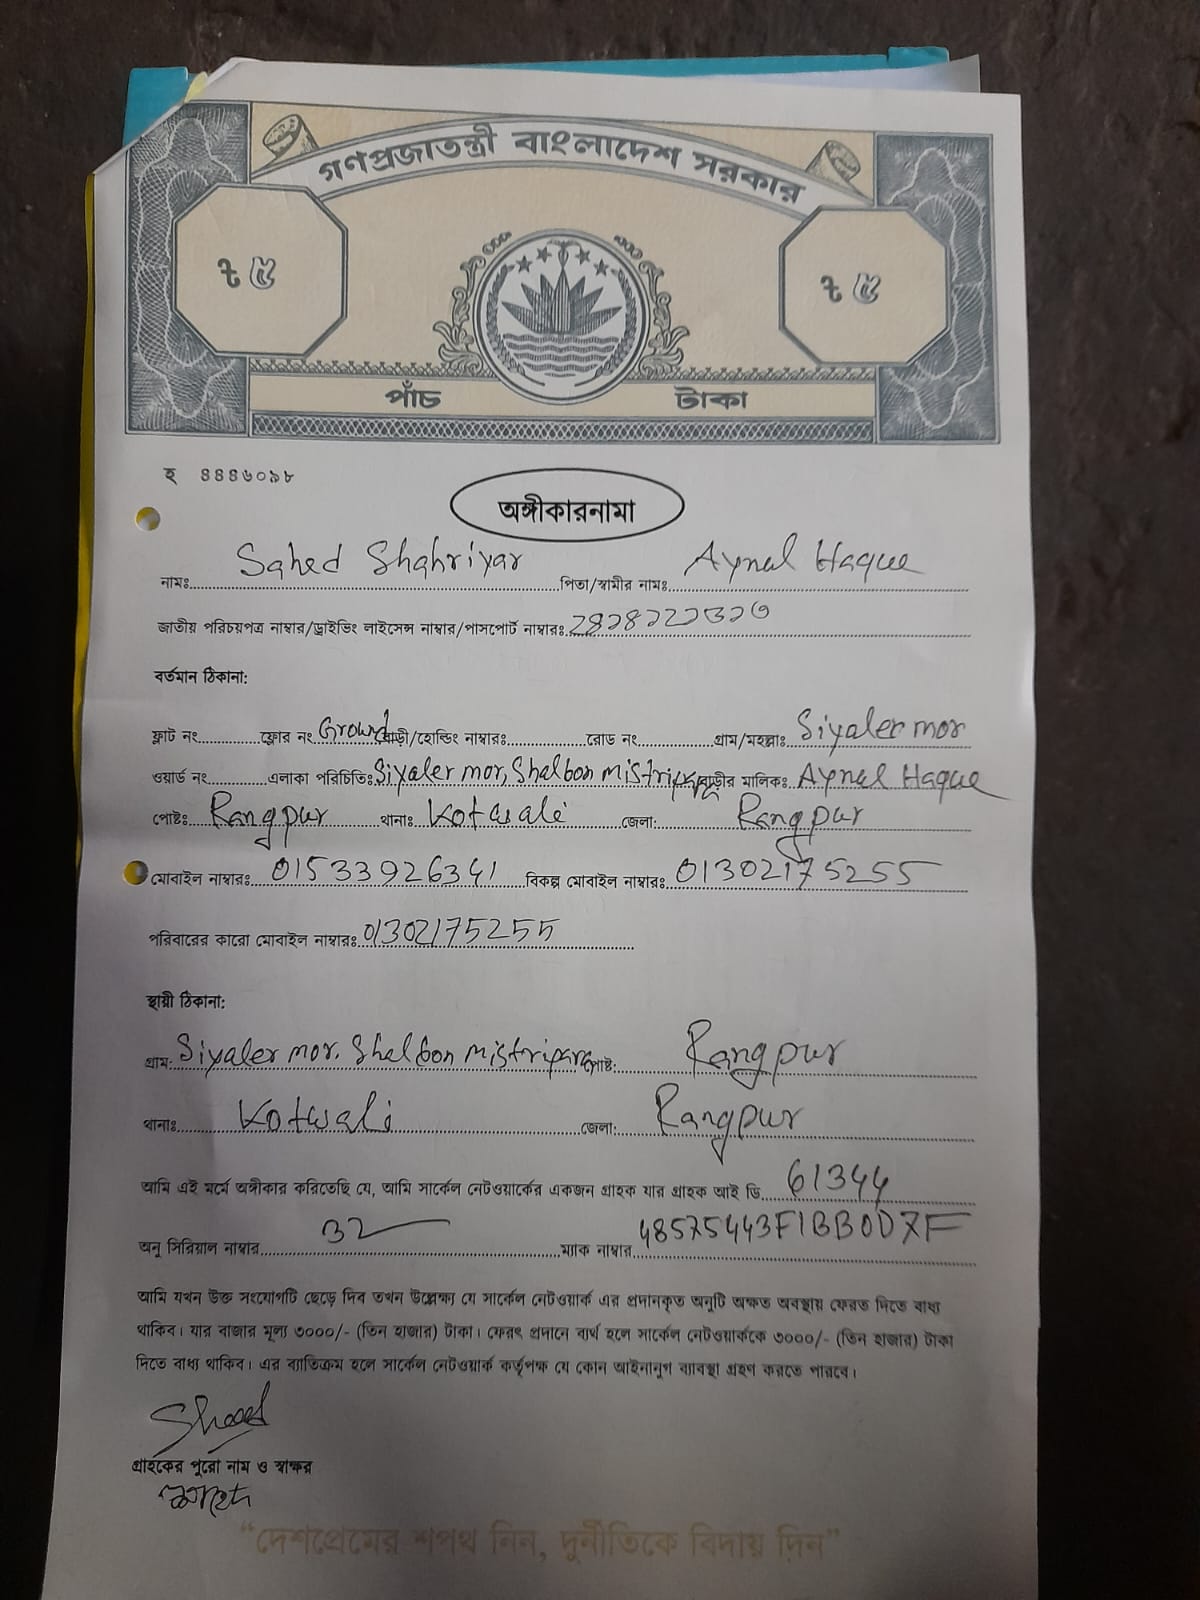 গণপ্রজাতন্ত্রী বাংলাদেশ সরকার
৳ ৫ ৳ ৫
পাঁচ টাকা
হ ৪৪৪৬০৯৮
অঙ্গীকারনামা
নামঃ Sahed Shahriyar পিতা/স্বামীর নামঃ Aynal Haque
জাতীয় পরিচয়পত্র নাম্বার/ড্রাইভিং লাইসেন্স নাম্বার/পাসপোর্ট নাম্বারঃ
বর্তমান ঠিকানা:
ফ্লাট নং ফ্লোর নং Ground বাড়ী/হোল্ডিং নাম্বারঃ রোড নং গ্রাম/মহল্লাঃ Siyaler mor
ওয়ার্ড নং এলাকা পরিচিতিঃ Siyaler mor, Shalbon mistripara বাড়ীর মালিকঃ Aynal Haque
পোষ্টঃ Rangpur থানাঃ Kotwali জেলা: Rangpur
মোবাইল নাম্বারঃ 01533926341 বিকল্প মোবাইল নাম্বারঃ 01302175255
পরিবারের কারো মোবাইল নাম্বারঃ 01302175255
স্থায়ী ঠিকানা:
গ্রাম: Siyaler mor. Shalbon mistripara পোষ্ট: Rangpur
থানাঃ Kotwali জেলা: Rangpur
আমি এই মর্মে অঙ্গীকার করিতেছি যে, আমি সার্কেল নেটওয়ার্কের একজন গ্রাহক যার গ্রাহক আই ডি 61344
অনু সিরিয়াল নাম্বার 32 ম্যাক নাম্বার 48575443F1BB0D7F
আমি যখন উক্ত সংযোগটি ছেড়ে দিব তখন উল্লেক্ষ্য যে সার্কেল নেটওয়ার্ক এর প্রদানকৃত অনুটি অক্ষত অবস্থায় ফেরত দিতে বাধ্য
থাকিব। যার বাজার মূল্য ৩০০০/- (তিন হাজার) টাকা। ফেরৎ প্রদানে ব্যর্থ হলে সার্কেল নেটওয়ার্ককে ৩০০০/- (তিন হাজার) টাকা
দিতে বাধ্য থাকিব। এর ব্যাতিক্রম হলে সার্কেল নেটওয়ার্ক কর্তৃপক্ষ যে কোন আইনানুগ ব্যাবস্থা গ্রহণ করতে পারবে।
গ্রাহকের পুরো নাম ও স্বাক্ষর
“দেশপ্রেমের শপথ নিন, দুর্নীতিকে বিদায় দিন”